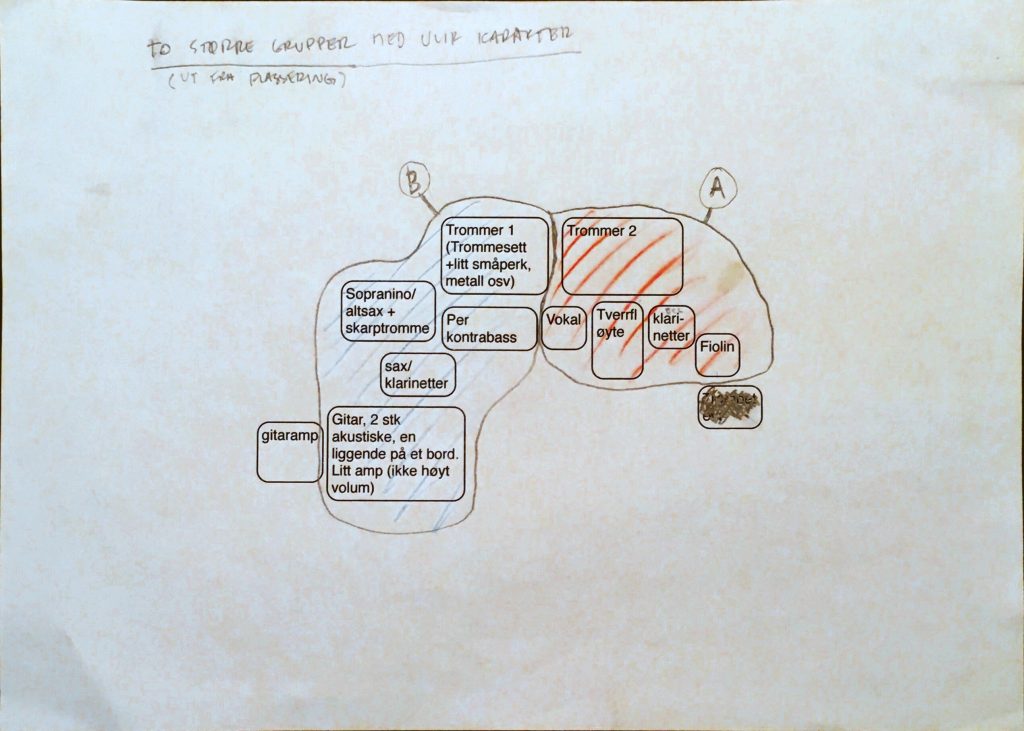 TO STØRRE GRUPPER MED ULIK KARAKTER
(UT FRA PLASSERING)
B
A
Trommer 1
(Trommesett
+litt småperk,
metall osv)
Trommer 2
Sopranino/
altsax +
skarptromme
Per
kontrabass
Vokal
Tverrfl
øyte
klari-
netter
Fiolin
sax/
klarinetter
gitaramp
Gitar, 2 stk
akustiske, en
liggende på et bord.
Litt amp (ikke høyt
volum)